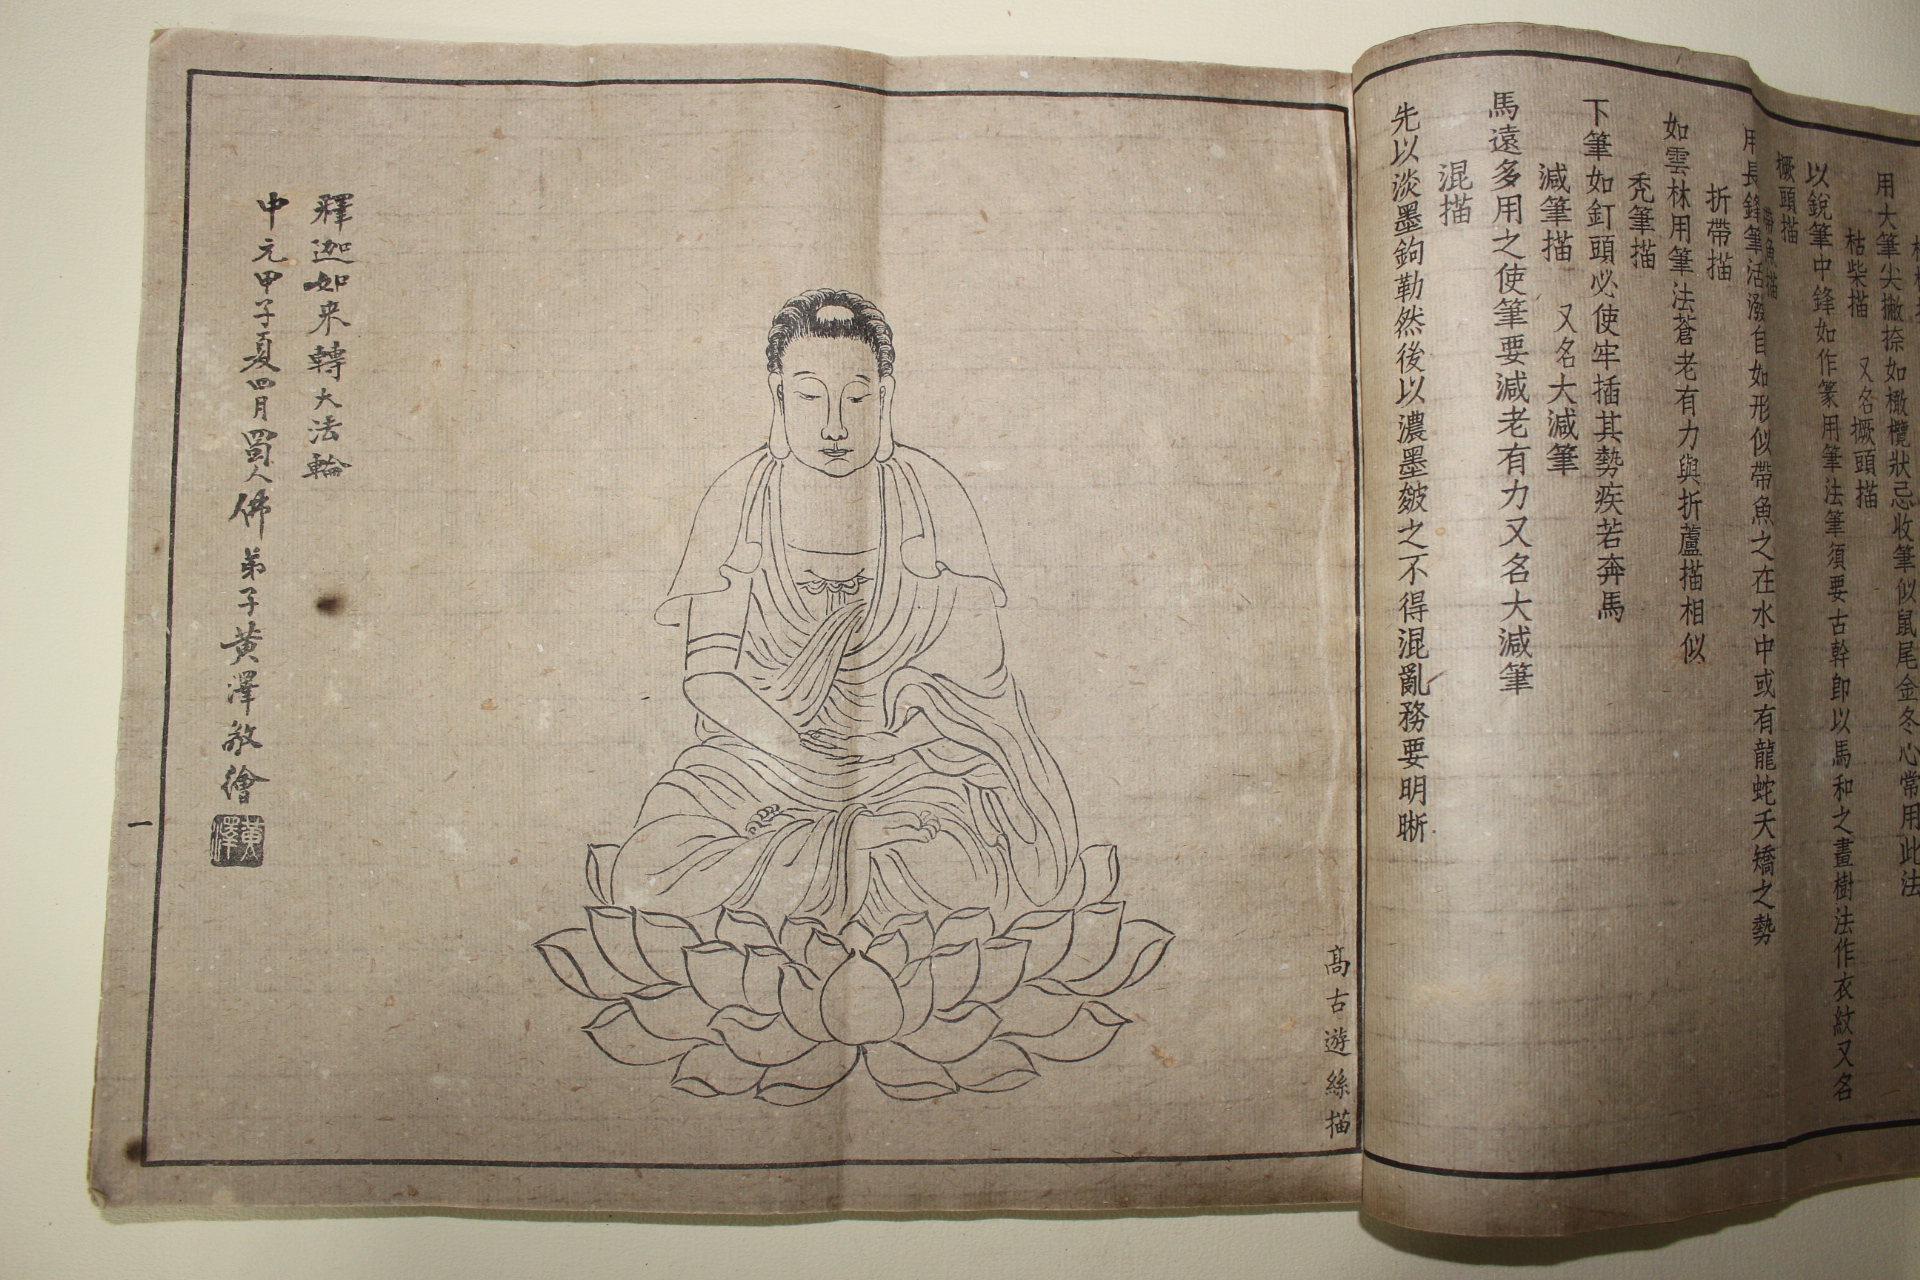 用大筆尖撇捺如橄欖狀忌收筆似鼠尾金冬心常用此法
枯柴描　又名橛頭描
以銳筆中鋒如作篆用筆法筆須要古幹即以馬和之畫樹法作衣紋又名
橛頭描
帶魚描
用長鋒筆活潑自如形似帶魚之在水中或有龍蛇夭矯之勢
折帶描
如雲林用筆法蒼老有力與折蘆描相似
禿筆描
下筆如釘頭必使牢插其勢疾若奔馬
減筆描　又名大減筆
馬遠多用之使筆要減老有力又名大減筆
混描
先以淡墨鉤勒然後以濃墨皴之不得混亂務要明晰
高古遊絲描
釋迦如来轉大法輪
中元甲子夏四月蜀人佛弟子黃澤敬繪
黃澤
一